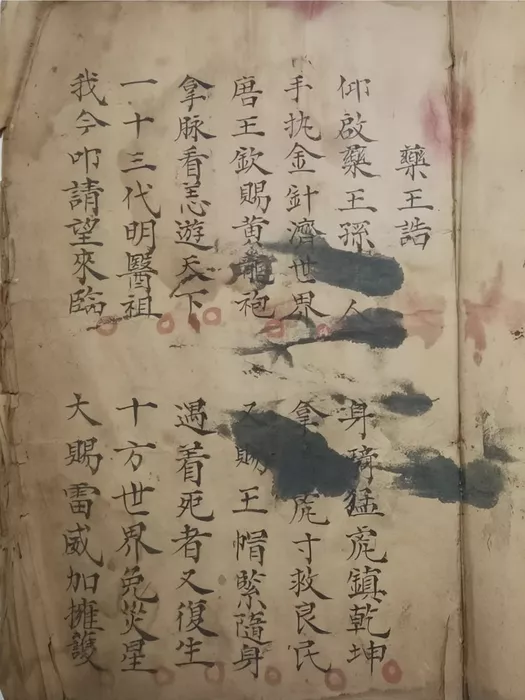 藥王誥
仰啟藥王孫人 身琦猛虎鎮乾坤
手执金針濟世界 拿虎寸救良民
唐王欽賜黄龍袍 又賜王帽緊隨身
拿脉看恙遊天下 遇着死者又復生
一十三代明醫祖 十方世界免災星
我今叩請望來臨 大賜雷威加擁護